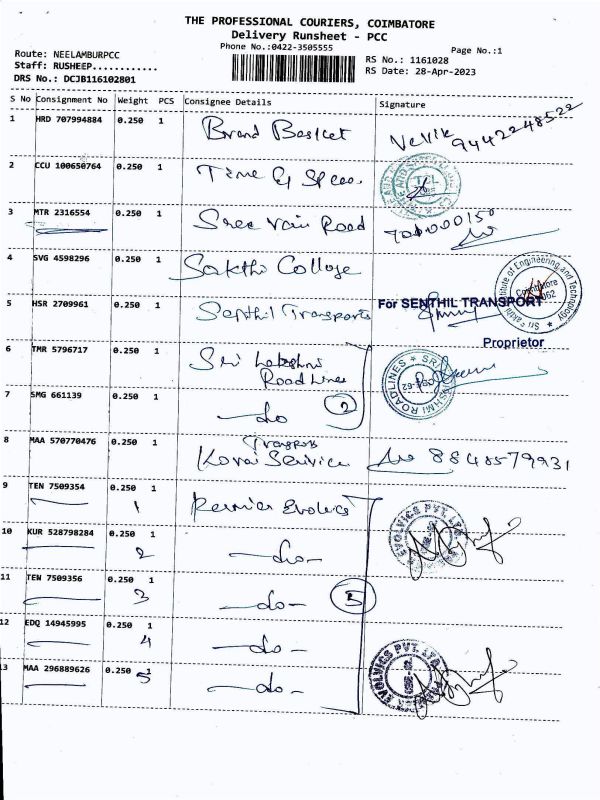 THE PROFESSIONAL COURIERS, COIMBATORE
Delivery Runsheet - PCC
Phone No.:0422-3505555
Page No.:1
Route: NEELAMBURPCC
Staff: RUSHEEP............
DRS No.: DCJB116102801
RS No.: 1161028
RS Date: 28-Apr-2023
S No Consignment No Weight PCS Consignee Details Signature
1 HRD 707994884 0.250 1 Brand Basket 9442248522
2 CCU 100650764 0.250 1 Time
3 MTR 2316554 0.250 1 Sree Vari Road
4 SVG 4598296 0.250 1 Sakthi College
5 HSR 2709961 0.250 1 Senthil Transports For SENTHIL TRANSPORT
Proprietor
6 TMR 5796717 0.250 1 Sri Lakshmi
Road Lines
7 SMG 661139 0.250 1 -do- 2
8 MAA 570770476 0.250 1 Transports
Kovai Service 8848579931
9 TEN 7509354 0.250 1 1 Evolvics
10 KUR 528798284 0.250 1 2 -do-
11 TEN 7509356 0.250 1 3 -do- 5
12 EDQ 14945995 0.250 1 4 -do-
13 MAA 296889626 0.250 1 5 -do-
EVOLVICS PVT. LTD.